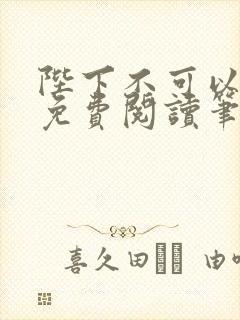 陛下不可以
免費閱讀筆
喜久田 由